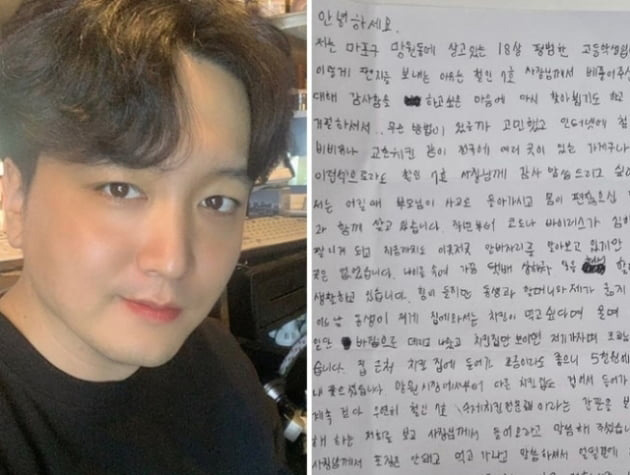 안녕하세요.
저는 마포구 망원동에 살고있는 18살 평범한 고등학생입
이렇게 편지를 보내는 이유는 철인 7호 사장님께서 베풀어주신
대해 감사함을 하고싶은 마음에 다시 찾아뵙기도 하고
거절하셔서.. 무슨 방법이 있을까 고민했고 인터넷에
비비큐나 교촌치킨 같이 전국에 여러 곳이 있는 가게구나
이런식으로라도 철인 7호 사장님께 감사 말씀드리고 싶어
저는 어릴때 부모님이 사고로 돌아가시고 몸이 편찮으신 할
과 함께 살고 있습니다. 작년부터 코로나 바이러스가 심해
지금까지도 이곳저곳 알바자리를 알아보고 있지만
곳은 없었습니다. 나이를 속여 가끔 택배 상하차 일을
생활하고 있습니다. 힘이 들지만 동생과 할머니와 제가 굶지
어느날 동생이 제게 집에와서는 치킨이 먹고싶다며 울며
일단 밖으로 데리고 나왔고 치킨집만 보이면 저기가자며 조르
습니다. 집 근처 치킨 집에 들어가 조금이라도 좋으니 5천원에
내 쫓으셨습니다. 망원시장에서부터 다른 치킨집도 걸어서 들어가
계속 걷다 우연히 철인 7호 수제치킨전문점이라는 간판을 보
해 하는 저희를 보고 사장님께서 들어오라고 말씀해 주셨습니
사장님께서 포장은 안되고 먹고 가라고 말씀하셔서